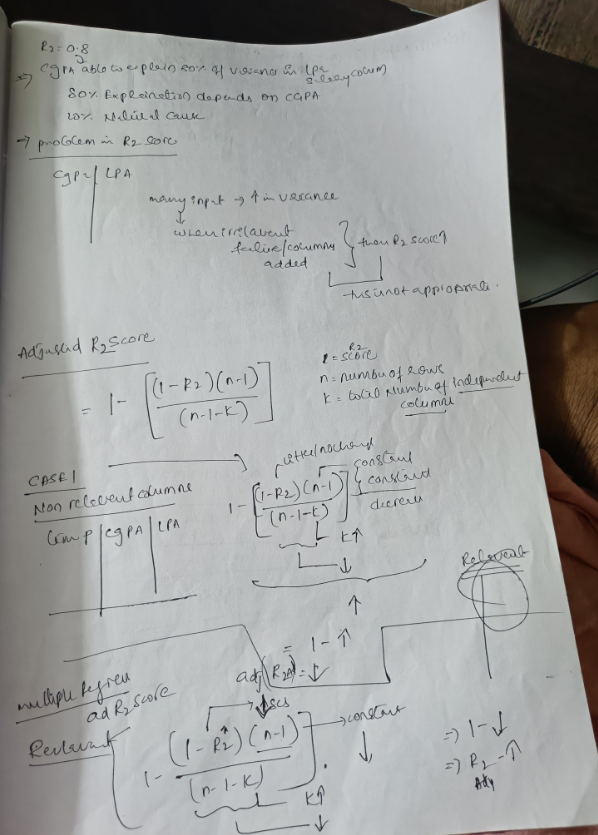 R2 = 0.8
=> CgPA able to explain 80% of variance in lpa salary colum
80% Explaination depends on CGPA
20% Natural cause
-> problem in R2 score
CgPA | LPA
many input → ↑ in varance
↓
when irrelavent
featiue/columns
added
then R2 score ↑
this is not appropriate.
Adjusted R2 score
= 1 - [(1-R2)(n-1) / (n-1-K)]
r = R2 score
n = number of rows
K = total number of independent
columns
CASE 1
Non relevent columns
temp | cgPA | LPA
constant
constant
1 - [(1-R2)(n-1) / (n-1-K)]
K↑
↓
↑
= 1 - ↑
adj(R2) = ↓
Relevant
multiple Regreu
ad R2 score
Relevant
1 - [(1-R2↑)(n-1) / (n-1-K)]
→ constant
↓
K↑
↓
=> 1-↓
=> R2 - ↑
Adj